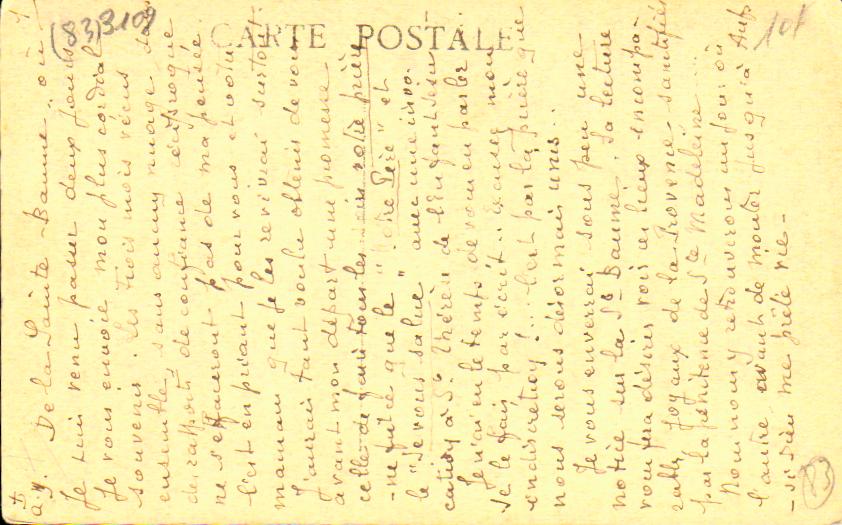 CARTE POSTALE
(83) 3109
101
83
†
a.y. De la Sainte-Baume, où
je suis venu passer deux jours
je vous envoie mon plus cordial
souvenir. Les trois mois vécus
ensemble, sans aucun nuage dans
des rapports de confiance réciproque
ne s'effaceront pas de ma pensée.
C'est en priant pour vous et votre
maman que je les revivrai surtout.
J'aurais tant voulu obtenis de vous
avant mon départ une promesse
celle de faire tous les soirs votre prière
- ne fut ce que le "Notre Père" et
le "Je vous salue" avec une invo-
cation à Ste Thérèse de l'Enfant Jésus
Je n'ai eu le temps de vous en parler.
Je le fais par écrit. Excusez mon
indiscrétion!... C'est par la prière que
nous serons désormais unis...
Je vous enverrai sous peu une
notice sur la Ste Baume. Sa lecture
vous fera désirer voir ces lieux incompa-
rables joyaux de la Provence sanctifiés
par la pénitence de Ste Madeleine...
Nous nous y retrouverons un jour ou
l'autre avant de monter jusqu'à
- si Dieu me prête vie -